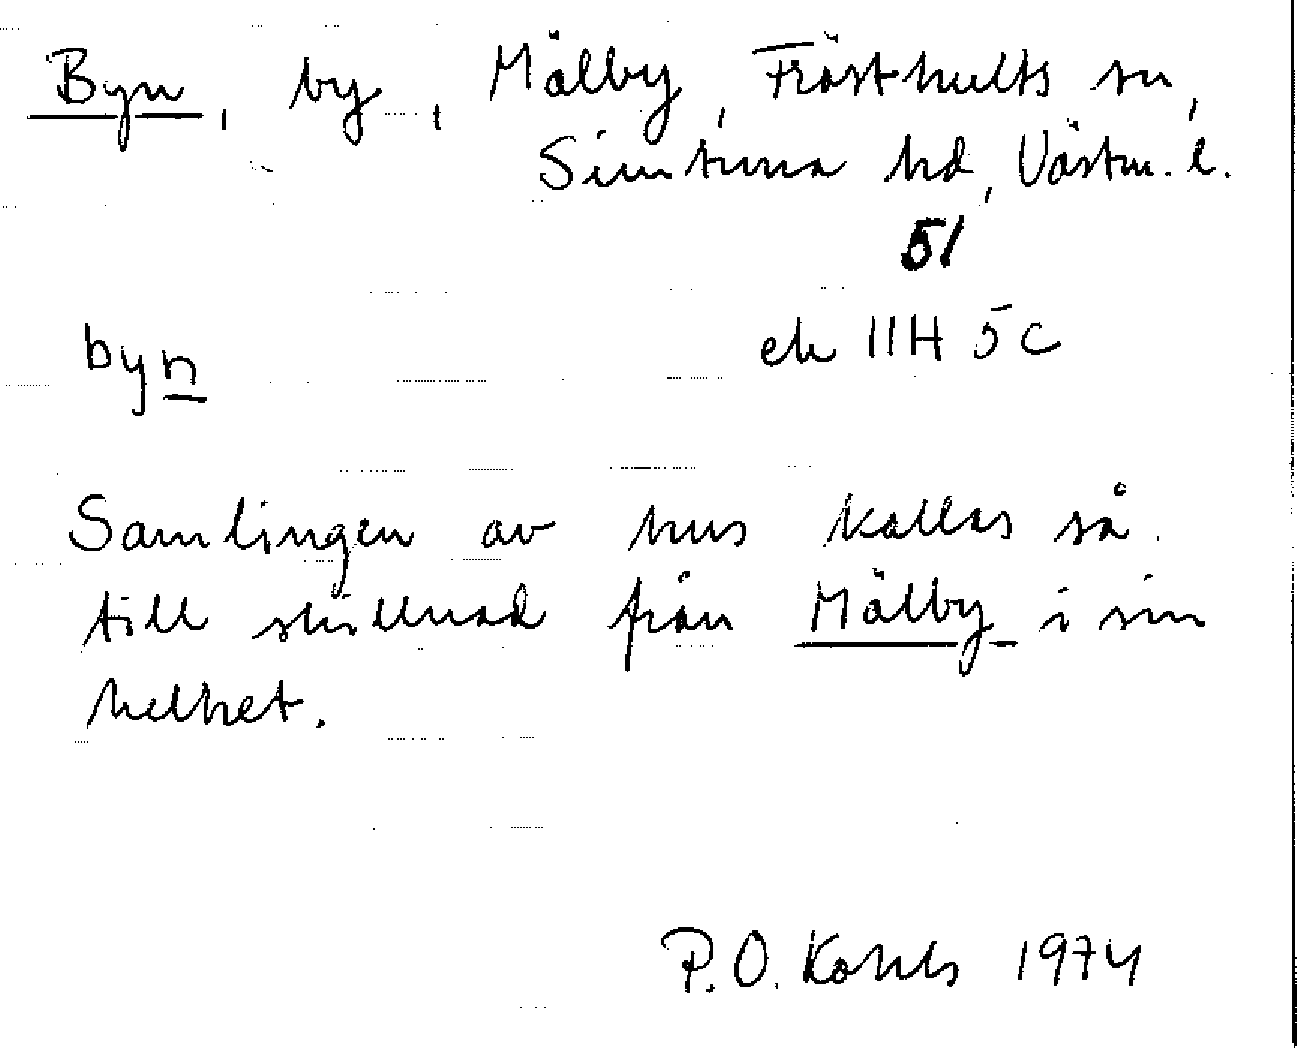 Byn, by, Mälby, Frösthults sn,
Simtuna hd, Västm. l.
51
byn
ek 11H 5c
Samlingen av hus kallas så
till skillnad från Mälby i sin
helhet.
P.O. Kohls 1974